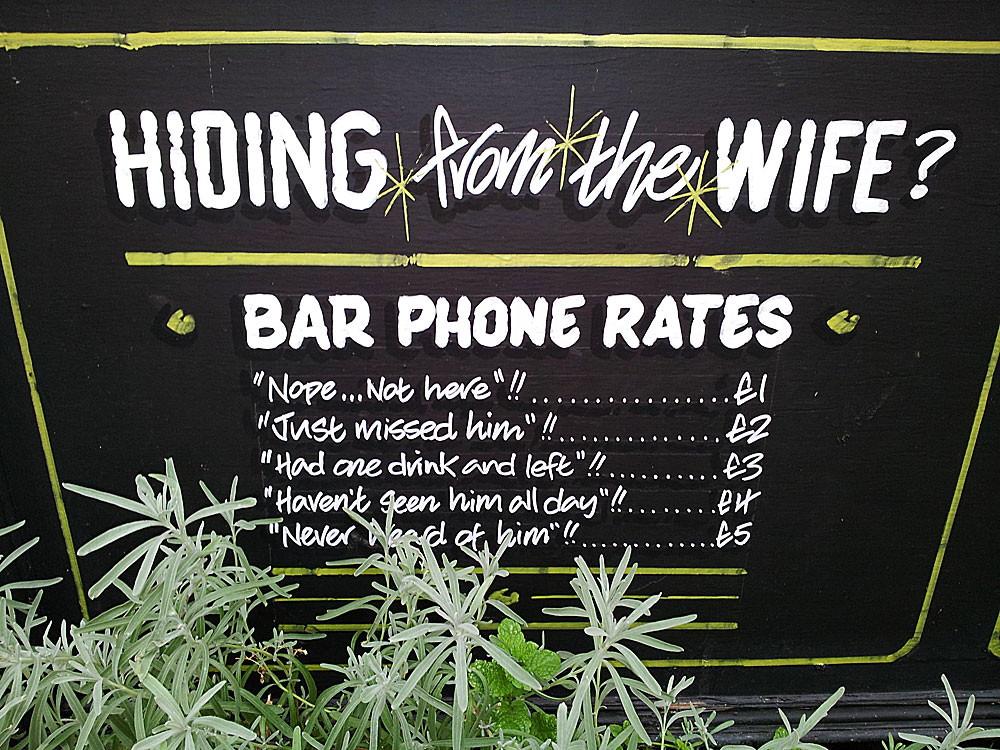 HIDING from the WIFE?
BAR PHONE RATES
"Nope...Not here"!!................£1
"Just missed him"!!..............£2
"Had one drink and left"!!.........£3
"Haven't seen him all day"!!.........£4
"Never Heard of him"!!.............£5